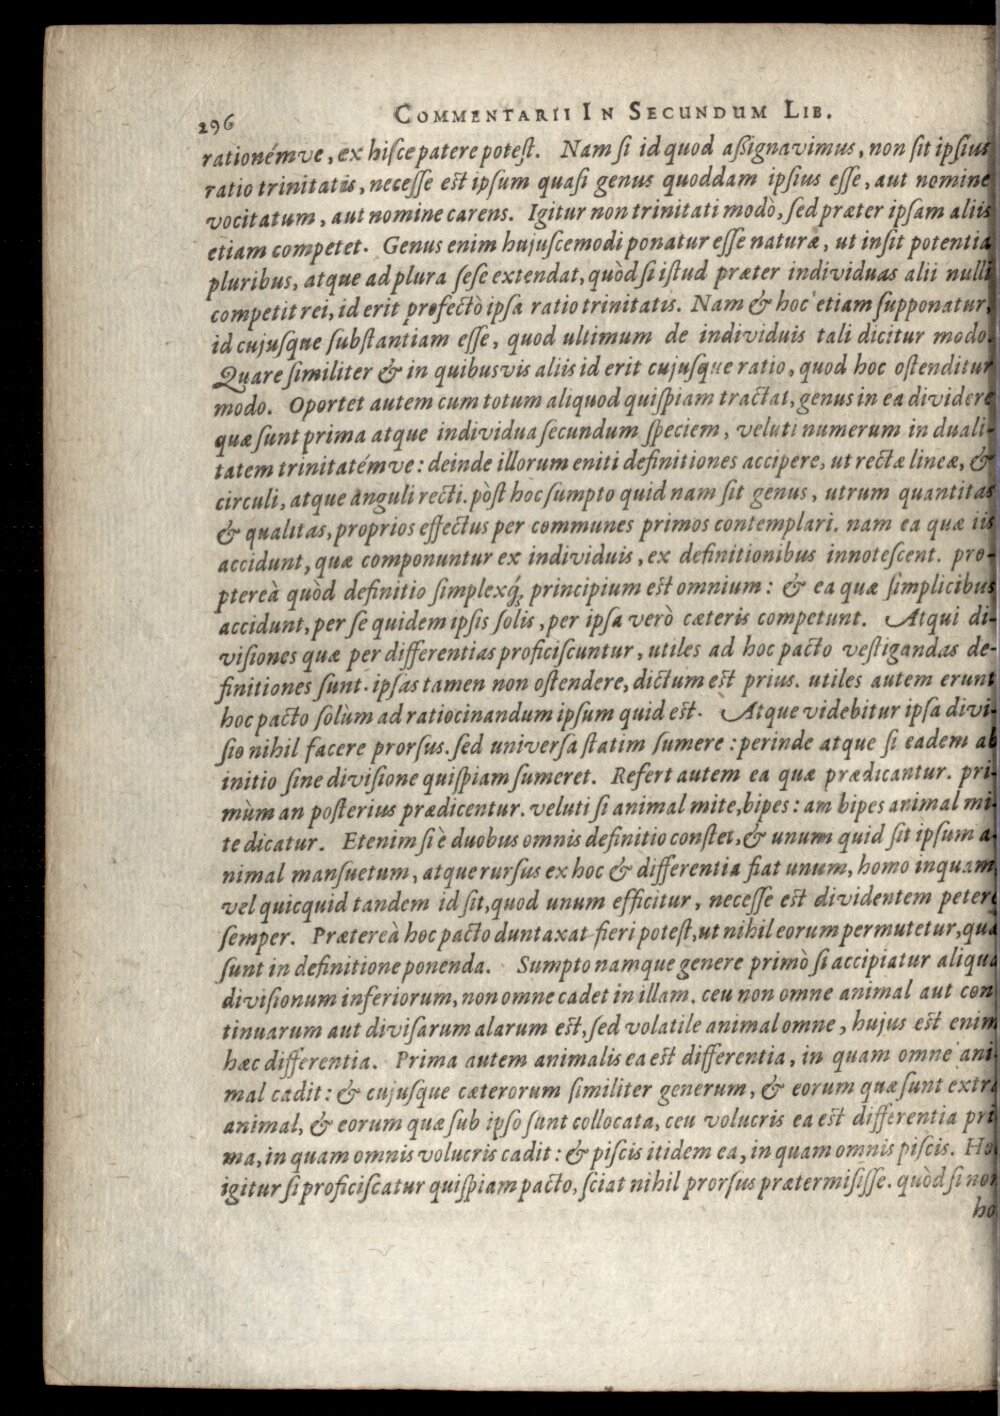 296 COMMENTARII IN SECUNDUM LIB.
rationémve, ex hisce patere potest. Nam si id quod assignavimus, non sit ipsius
ratio trinitatis, necesse est ipsum quasi genus quoddam ipsius esse, aut nomine
vocitatum, aut nomine carens. Igitur non trinitati modò, sed præter ipsam aliis
etiam competet. Genus enim hujuscemodi ponatur esse naturæ, ut insit potentia
pluribus, atque ad plura sese extendat, quòd si istud præter individuas alii nulli
competit rei, id erit profectò ipsa ratio trinitatis. Nam & hoc etiam supponatur,
id cujusque substantiam esse, quod ultimum de individuis tali dicitur modo.
Quare similiter & in quibusvis aliis id erit cujusque ratio, quod hoc ostenditur
modo. Oportet autem cum totum aliquod quispiam tractat, genus in ea dividere
quæ sunt prima atque individua secundum speciem, veluti numerum in duali-
tatem trinitatémve: deinde illorum eniti definitiones accipere, ut rectæ lineæ, &
circuli, atque anguli recti. pòst hoc sumpto quid nam sit genus, utrum quantitas
& qualitas, proprios effectus per communes primos contemplari. nam ea quæ iis
accidunt, quæ componuntur ex individuis, ex definitionibus innotescent. pro-
ptereà quòd definitio simplexq́; principium est omnium: & ea quæ simplicibus
accidunt, per se quidem ipsis solis, per ipsa verò cæteris competunt. Atqui di-
visiones quæ per differentias proficiscuntur, utiles ad hoc pacto vestigandas de-
finitiones sunt. ipsas tamen non ostendere, dictum est prius. utiles autem erunt
hoc pacto solùm ad ratiocinandum ipsum quid est. Atque videbitur ipsa divi-
sio nihil facere prorsus. sed universa statim sumere: perinde atque si eadem ab
initio sine divisione quispiam sumeret. Refert autem ea quæ prædicantur. pri-
mùm an posterius prædicentur. veluti si animal mite, bipes: am bipes animal mi-
te dicatur. Etenim si è duobus omnis definitio constet, & unum quid sit ipsum a-
nimal mansuetum, atque rursus ex hoc & differentia fiat unum, homo inquam,
vel quicquid tandem id sit, quod unum efficitur, necesse est dividentem petere
semper. Prætereà hoc pacto duntaxat fieri potest, ut nihil eorum permutetur, quæ
sunt in definitione ponenda. Sumpto namque genere primò si accipiatur aliqua
divisionum inferiorum, non omne cadet in illam. ceu non omne animal aut con
tinuarum aut divisarum alarum est, sed volatile animal omne, hujus est enim
hæc differentia. Prima autem animalis ea est differentia, in quam omne ani-
mal cadit: & cujusque cæterorum similiter generum, & eorum quæ sunt extra
animal, & eorum quæ sub ipso sunt collocata, ceu volucris ea est differentia pri
ma, in quam omnis volucris cadit: & piscis itidem ea, in quam omnis piscis. Hoc
igitur si proficiscatur quispiam pacto, sciat nihil prorsus prætermisisse. quòd si non
ho